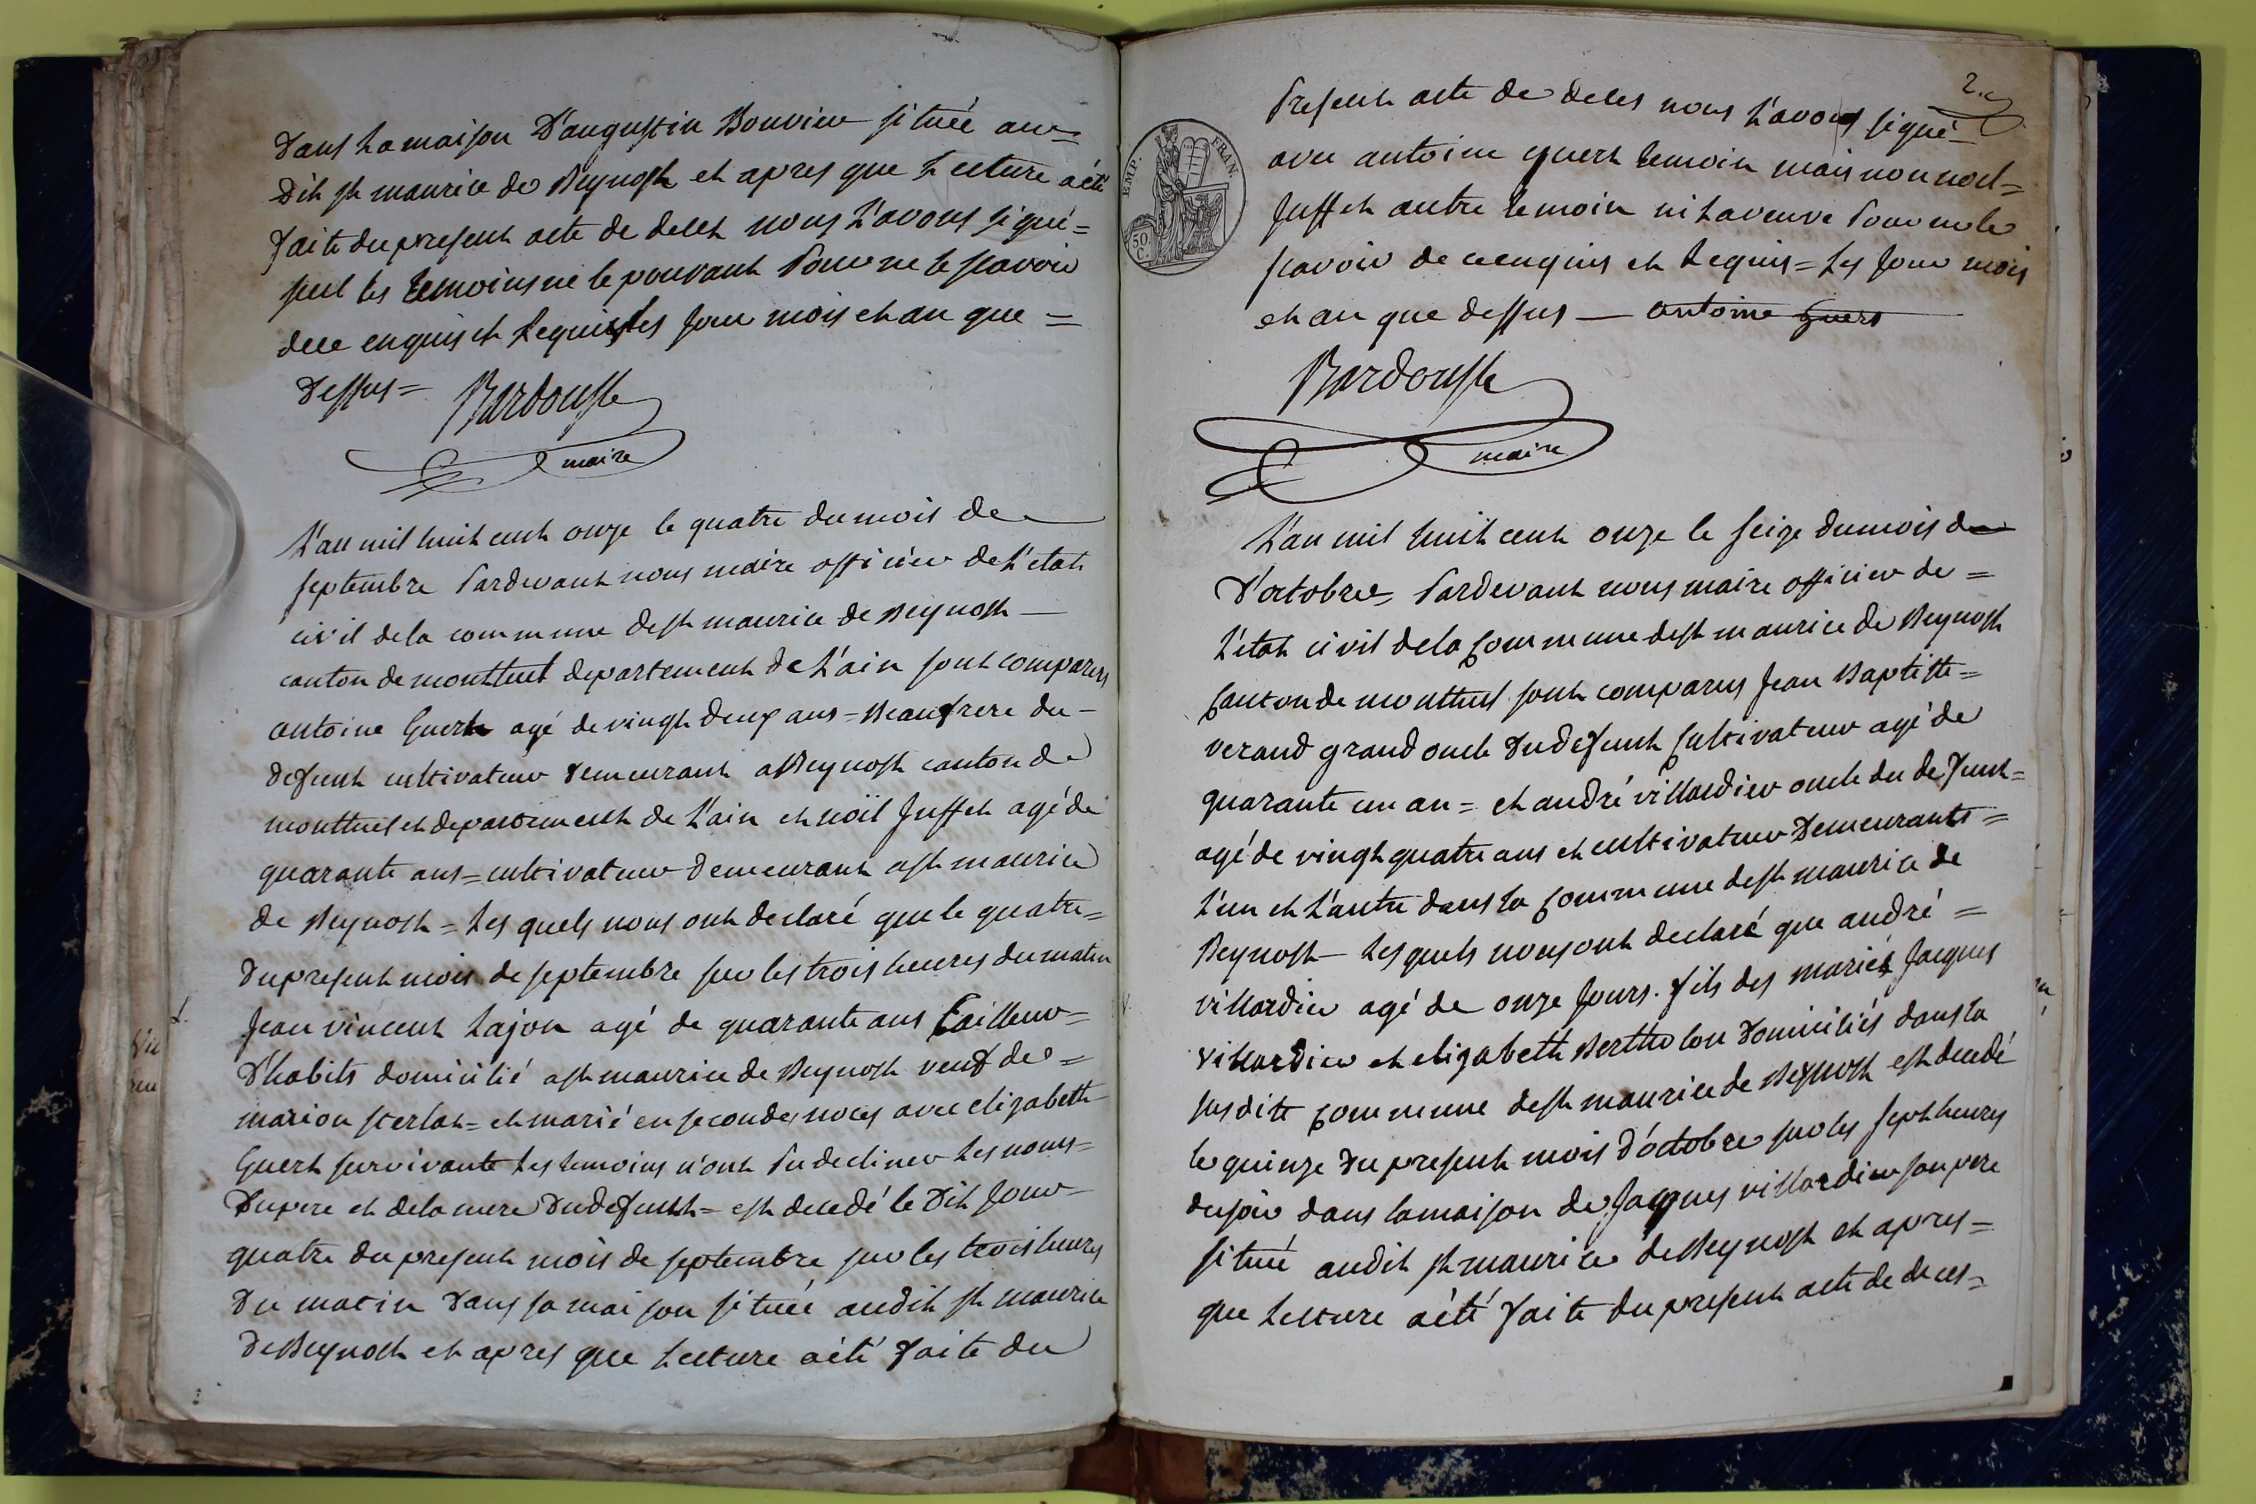 dans la maison d'augustin Bouvier située au=
dit st maurice de Beynost et apres que lecture a été
faite du present acte de deces nous l'avons signé=
seul les temoins ne le pouvant pour ne le scavoir
de ce enquis et requis les jour mois et an que =
dessus=
Bardoust
maire
L'an mil huit cent onze le quatre du mois de
septembre pardevant nous maire officier de l'etat
civil de la commune de st maurice de Beynost —
canton de montluel departement de l'ain sont comparus
antoine Guers agé de vingt deux ans = Beaufrere du-
defunt cultivateur demeurant a Beynost canton de
montluel et departement de l'ain et noël Juffet agé de
quarante ans = cultivateur demeurant a st maurice
de Beynost = Lesquels nous ont declaré que le quatre=
du present mois de septembre sur les trois heures du matin
Jean vincent Lajon agé de quarante ans tailleur=
d'habits domicilié a st maurice de Beynost veuf de =
marion sterlat = et marié en secondes noces avec elizabeth
Guers survivante les temoins n'ont pu decliner les noms=
du pere et de la mere du defunt = est decedé le dit jour
quatre du present mois de septembre sur les trois heures
du matin dans sa maison située audit st maurice
de Beynost et apres que lecture a été faite du
2.e
present acte de deces nous l'avons signé=
avec antoine guers temoin mais non noel=
Juffet autre temoin ni la veuve pour ne le
scavoir de ce enquis et requis = Les jour mois
et an que dessus — antoine guers
EMP. FRAN.
50 C.
Bardoust
maire
L'an mil huit cent onze le seize du mois de
d'octobre = pardevant nous maire officier de =
L'état civil de la commune de st maurice de Beynost
canton de montluel sont comparus Jean Baptiste=
verand grand oncle du defunt cultivateur agé de
quarante un an = et andré villardier oncle du defunt=
agé de vingt quatre ans et cultivateur demeurants =
l'un et l'autre dans la commune de st maurice de
Beynost — Lesquels nous ont declaré que andré =
villardier agé de onze jours. fils des mariés Jacques
villardier et elizabeth Bertholon domiciliés dans la
susdite commune de st maurice de Beynost est decedé
le quinze du present mois d'octobre sur les sept heures
du soir dans la maison de Jacques villardier son pere
située audit st maurice de Beynost et apres=
que lecture a été faite du present acte de deces=